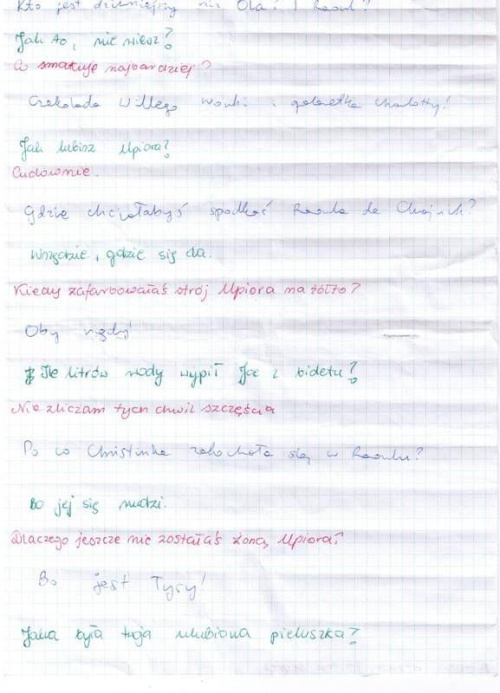 Kto jest dziwniejszy niż Ola i Raoul?
Jak to, nie wiesz?
Co smakuje najbardziej?
Czekolada Willego Wonki i galaretka Charlotty!
Jak lubisz Upiora?
Cudownie.
Gdzie chciałabyś spotkać Raoula de Chagnich?
Wszędzie, gdzie się da.
Kiedy zafarbowałaś strój Upiora na żółto?
Oby nigdy!
Ile litrów wody wypił Joe z bidetu?
Nie zliczam tych chwil szczęścia
Po co Christinka zakochała się w Raoulu?
Bo jej się nudzi.
Dlaczego jeszcze nie zostałaś żoną Upiora?
Bo jest Łysy!
Jaka była twoja ulubiona pieluszka?